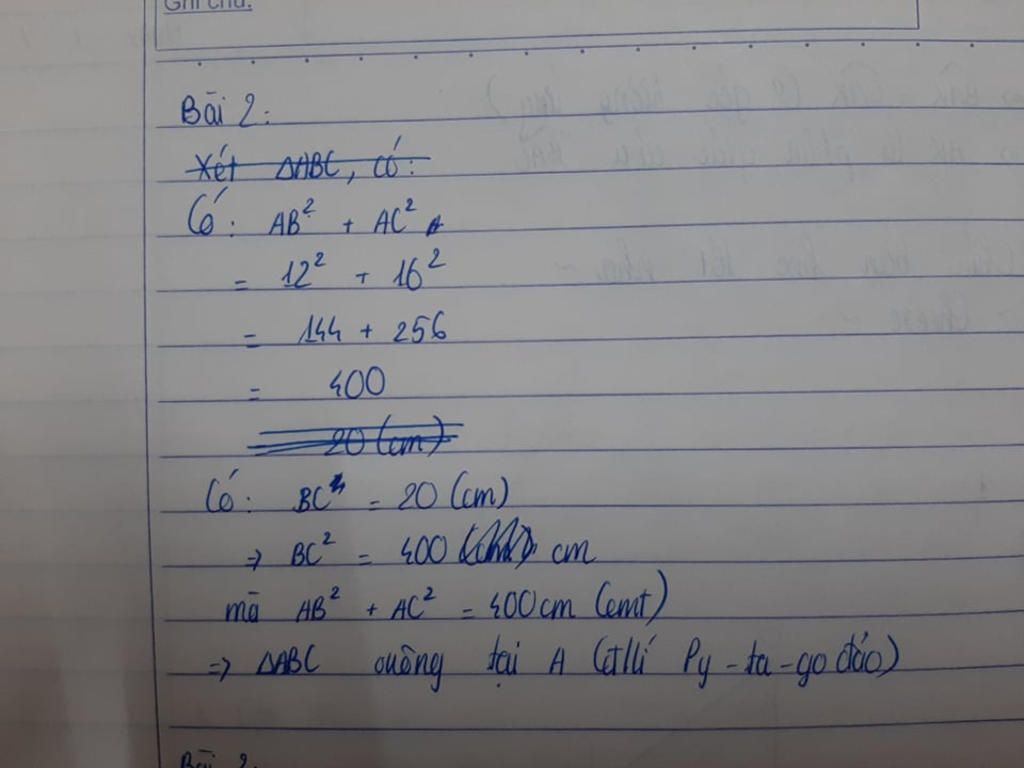 Ghi chú:
Bài 2:
Xét ΔABC, có:
Có: AB² + AC²
= 12² + 16²
= 144 + 256
= 400
20 (cm)
Có: BC = 20 (cm)
⇒ BC² = 400 cm
mà AB² + AC² = 400 cm (cmt)
⇒ ΔABC vuông tại A (đ/lí Py-ta-go đảo)